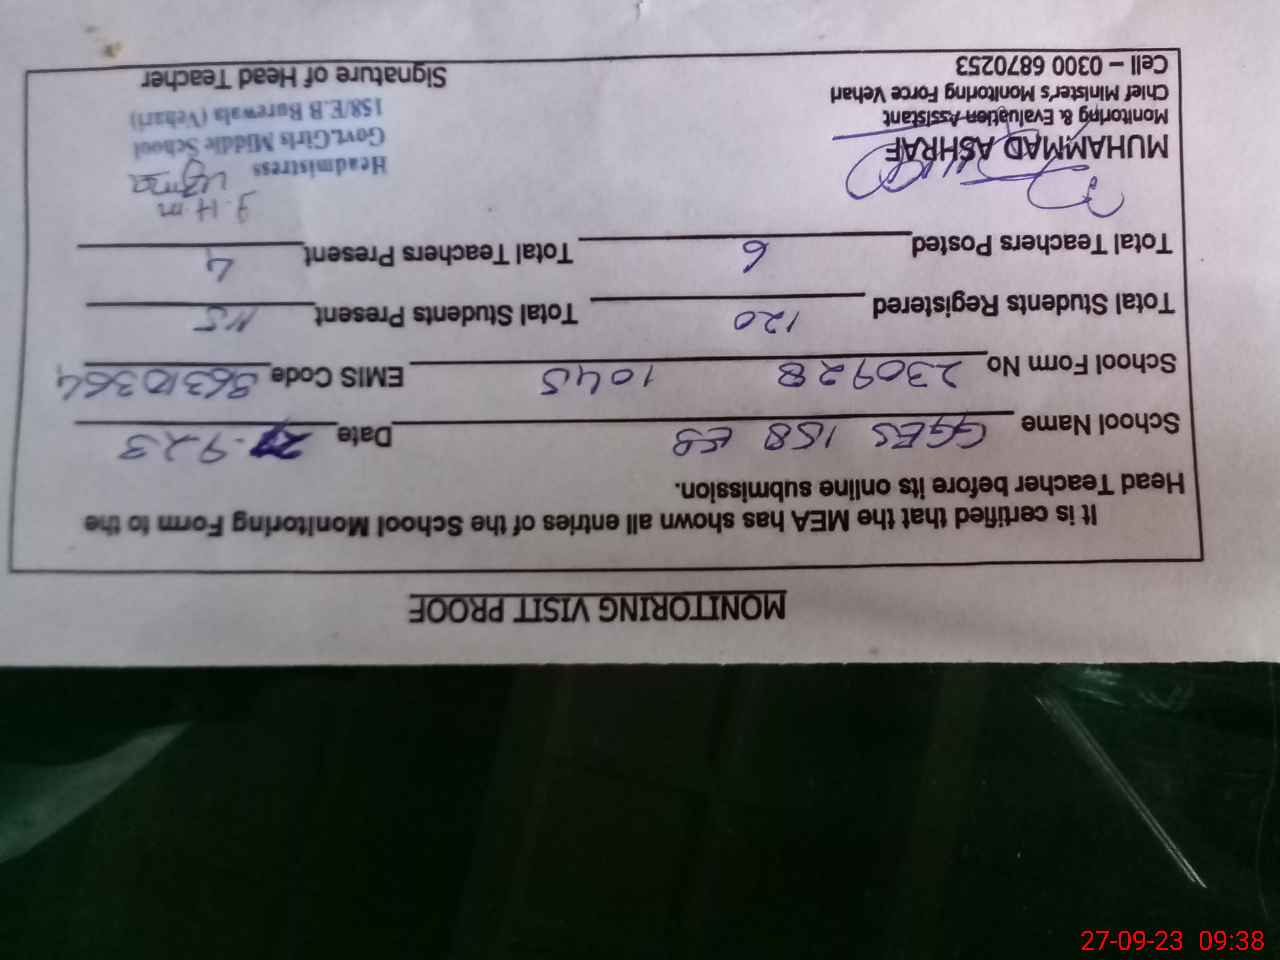 MONITORING VISIT PROOF
It is certified that the MEA has shown all entries of the School Monitoring Form to the
Head Teacher before its online submission.
School Name GGES 158 EB Date 27.9.23
School Form No 230928 1045 EMIS Code 36310364
Total Students Registered 120 Total Students Present 115
Total Teachers Posted 6 Total Teachers Present 4
I.H.m
Uzma
MUHAMMAD ASHRAF
Monitoring & Evaluation Assistant
Chief Minister's Monitoring Force Vehari
Cell – 0300 6870253
Headmistress
Govt.Girls Middle School
158/E.B Burewala (Vehari)
Signature of Head Teacher
27-09-23 09:38